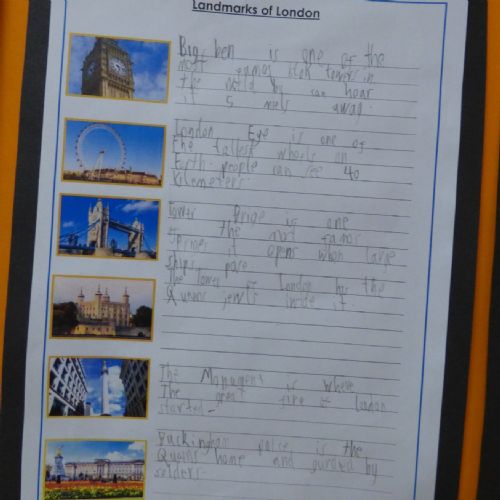 Landmarks of London
Big ben is one of the
most famos clok towers in
the world you can hear
it 5 miels away.
London Eye is one of
the tallest wheels on
Earth. people can see 40
Kilometers.
tower Brige is one
the most famos
it opens when large
ships pass.
The tower London has the
Queens jewls inside it
The Monument is where
The great fire of London
started.
Buckingham palice is the
Queens home and guared by
solders.